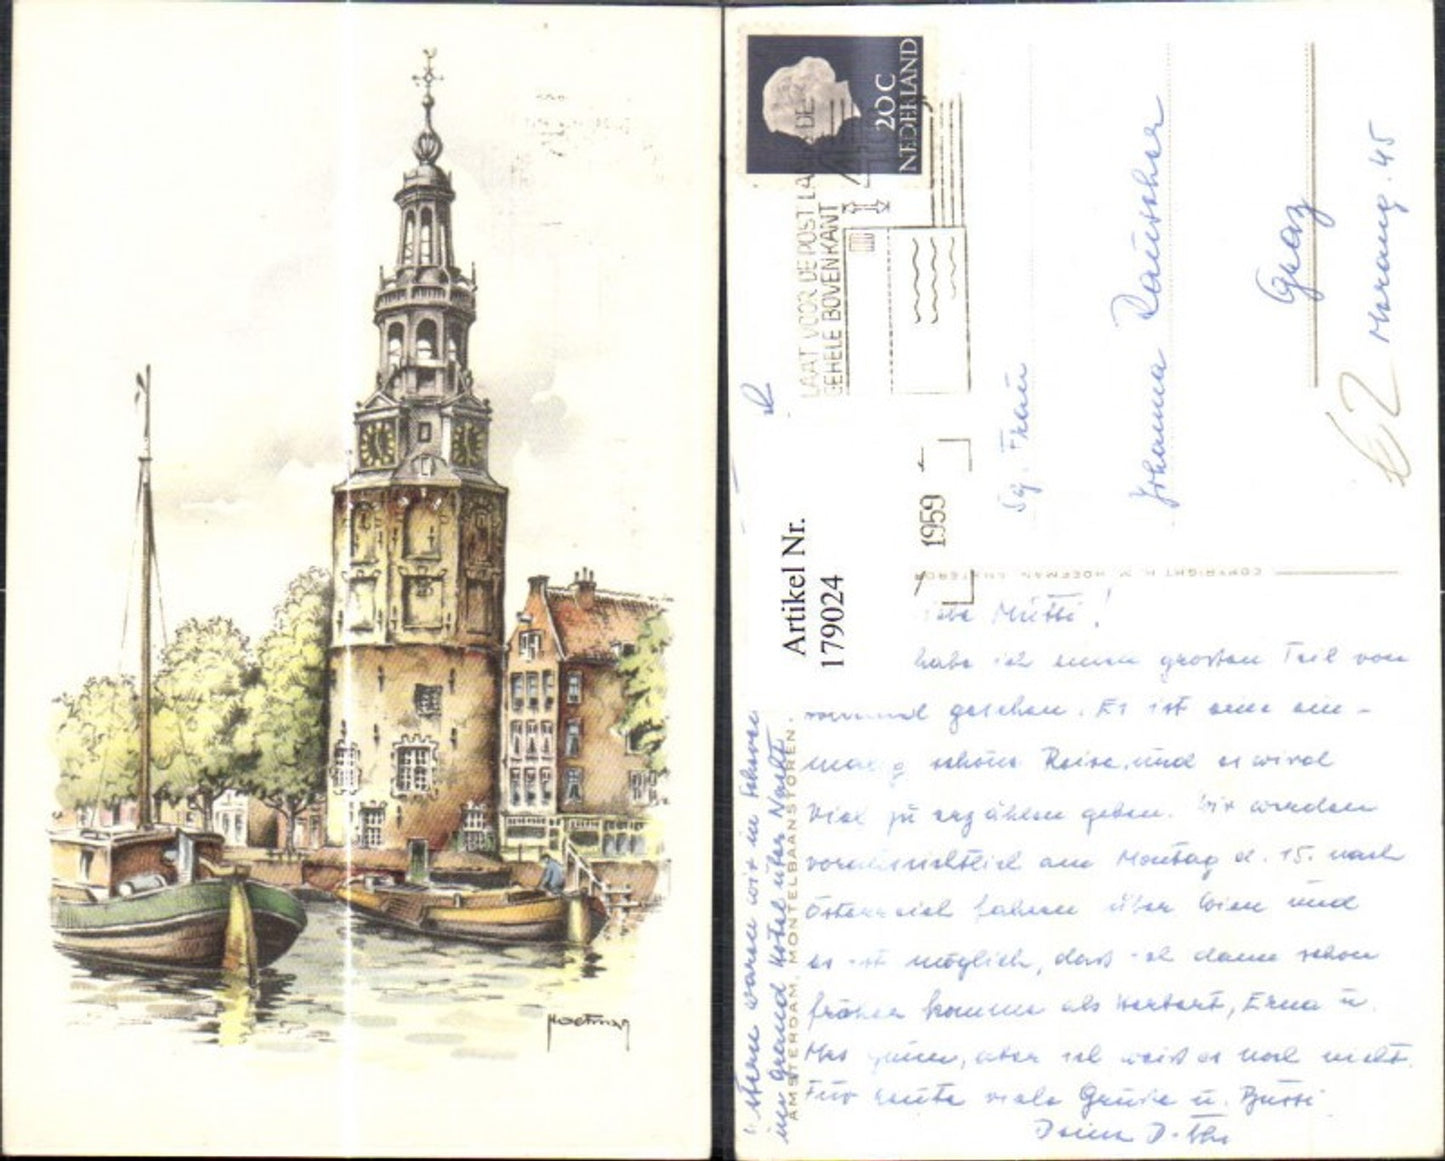 Hoefman
NEDERLAND
20 C
LAAT VOOR DE POST
GEHELE BOVENKANT
1959
Artikel Nr.
179024
Frau
Johanna
Graz
45
COPYRIGHT HOEFMAN, AMSTERDAM
AMSTERDAM, MONTELBAANSTOREN.
Mutti!
habe ich einen grossen Teil von
gesehen. Es ist eine ein-
malig schöne Reise, und es wird
viel zu erzählen geben. Wir werden
voraussichtlich am Montag d. 15. nach
Österreich fahren über Wien und
es ist möglich, dass ich dann schon
früher komme als Herbert, Erna u.
aber ich weiss es noch nicht.
Für heute viele Grüße u. Bussi
Deine
waren wir in
im grand Hotel über Nacht.